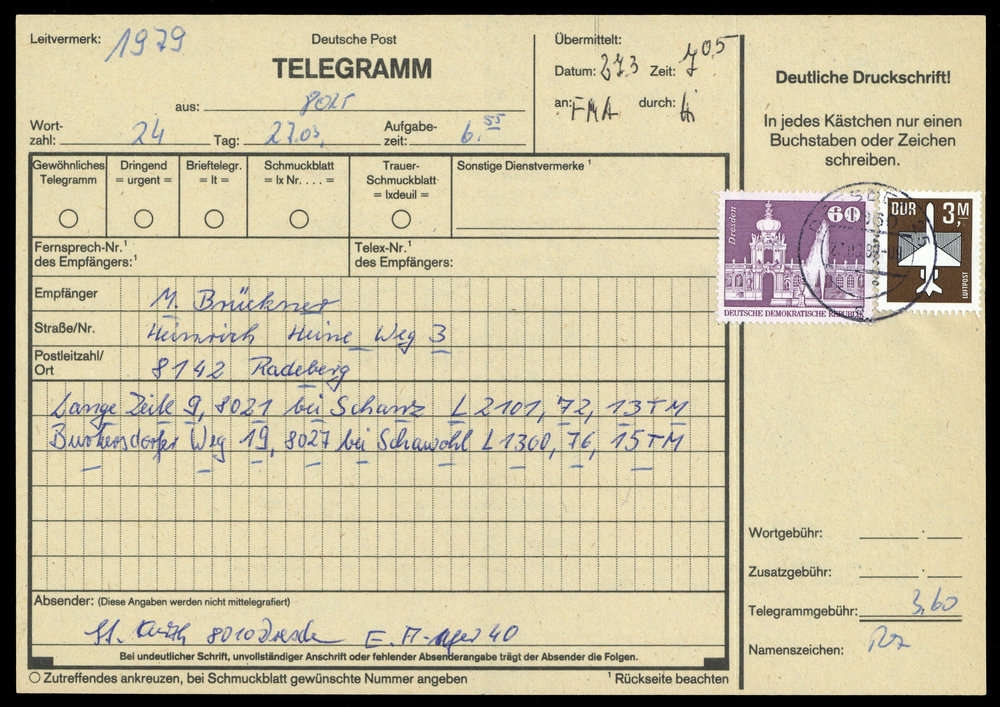 Leitvermerk: 1979
Deutsche Post
TELEGRAMM
aus: 8025
Wort-
zahl: 24 Tag: 27.03. Aufgabe-
zeit: 6.55
Übermittelt:
Datum: 273 Zeit: 705
an: FMA durch:
Deutliche Druckschrift!
In jedes Kästchen nur einen
Buchstaben oder Zeichen
schreiben.
Gewöhnliches
Telegramm
Dringend
= urgent =
Brieftelegr.
= lt =
Schmuckblatt
= lx Nr. . . . =
Trauer-
Schmuckblatt
= lxdeuil =
Sonstige Dienstvermerke ¹
Fernsprech-Nr.¹
des Empfängers:¹
Telex-Nr.¹
des Empfängers:
Dresden 60
DEUTSCHE DEMOKRATISCHE REPUBLIK
DDR 3,M
LUFTPOST
Empfänger M. Brückner
Straße/Nr. Heinrich Heine Weg 3
Postleitzahl/
Ort 8142 Radeberg
Lange Zeile 9, 8021 bei Schanz L 2101, 72, 13 TM
Burkersdorfer Weg 19, 8027 bei Schawohl L 1360, 76, 15 TM
Wortgebühr:
Zusatzgebühr:
Telegrammgebühr: 3,60
Namenszeichen:
Absender: (Diese Angaben werden nicht mittelegrafiert)
8010 Dresden 40
Bei undeutlicher Schrift, unvollständiger Anschrift oder fehlender Absenderangabe trägt der Absender die Folgen.
Zutreffendes ankreuzen, bei Schmuckblatt gewünschte Nummer angeben
¹ Rückseite beachten